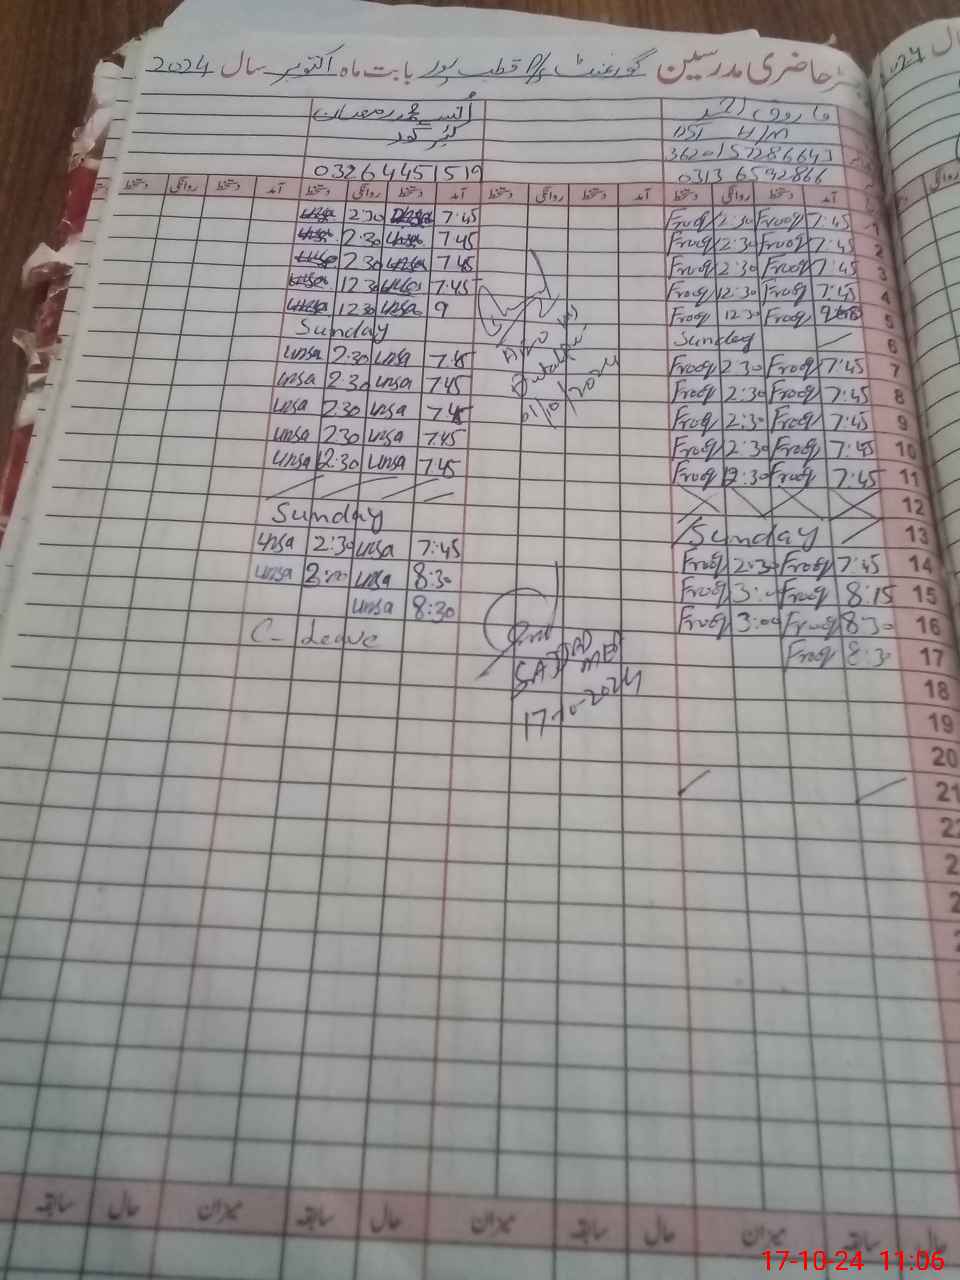 حاضری مدرسین گورنمنٹ P/s قطب پور بابت ماہ اکتوبر سال 2024
H/M
03264451519
0313 6592866
آمد دستخط روانگی دستخط آمد دستخط روانگی دستخط آمد دستخط روانگی دستخط
7:45 Frooq 2:30 Frooq 1
7:45 unsa 2:30 unsa
7:45 Frooq 2:30 Frooq 2
7:45 unsa 2:30 unsa
7:45 Frooq 2:30 Frooq 3
7:45 unsa 2:30 unsa
7:45 Frooq 12:30 Frooq 4
7:45 unsa 12:30 unsa
Frooq 12:30 Frooq 5
9 unsa 12:30 unsa
Sunday 6
Sunday
7:45 Frooq 2:30 Frooq 7
7:45 unsa 2:30 unsa
7:45 Frooq 2:30 Frooq 8
7:45 unsa 2:30 unsa
7:45 Frooq 2:30 Frooq 9
7:45 unsa 2:30 unsa
7:45 Frooq 2:30 Frooq 10
7:45 unsa 2:30 unsa
7:45 Frooq 12:30 Frooq 11
7:45 unsa 12:30 unsa
12
Sunday 13
Sunday
7:45 Frooq 2:30 Frooq 14
7:45 unsa 2:30 unsa
8:15 Frooq 3:00 Frooq 15
8:30 unsa unsa
8:30 Frooq 3:00 Frooq 16
8:30 unsa
8:30 Frooq 17
C-Leave
18
19
20
21
01/10/2024
SAJJAD
17-10-2024
سابقہ حال میزان سابقہ حال میزان سابقہ حال میزان سابقہ
17-10-24 11:06